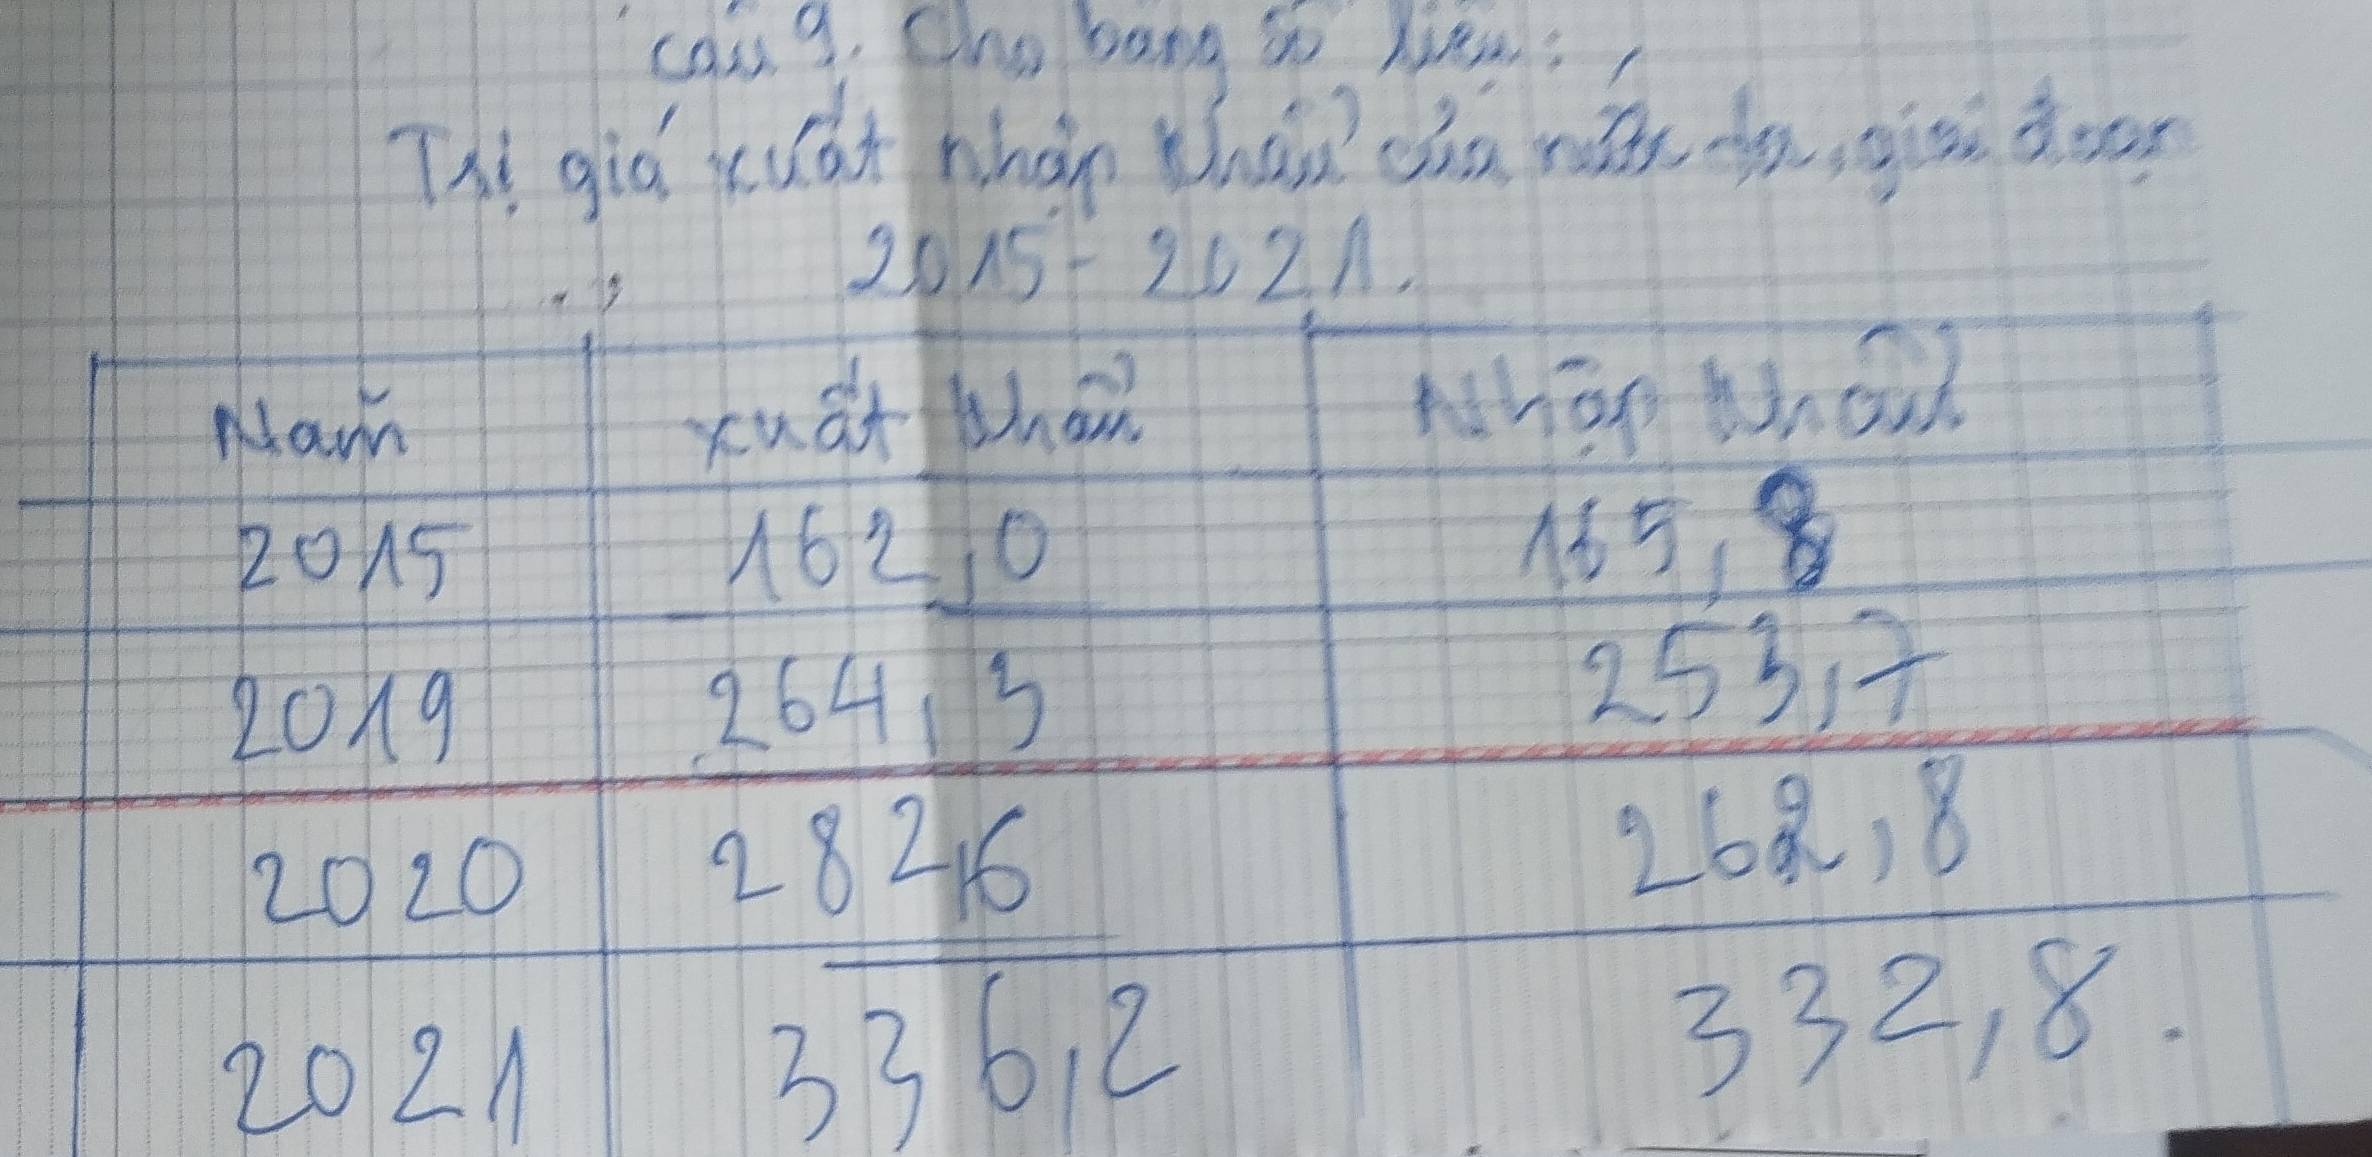 câu 9. Cho bảng số liệu:
Trị giá xuất nhập khẩu của nước ta, giai đoạn
2015 - 2021.
Năm xuất khẩu Nhập khẩu
2015 162,0 165,8
2019 264,3 253,7
2020 282,6 262,8
2021 336,2 332,8.